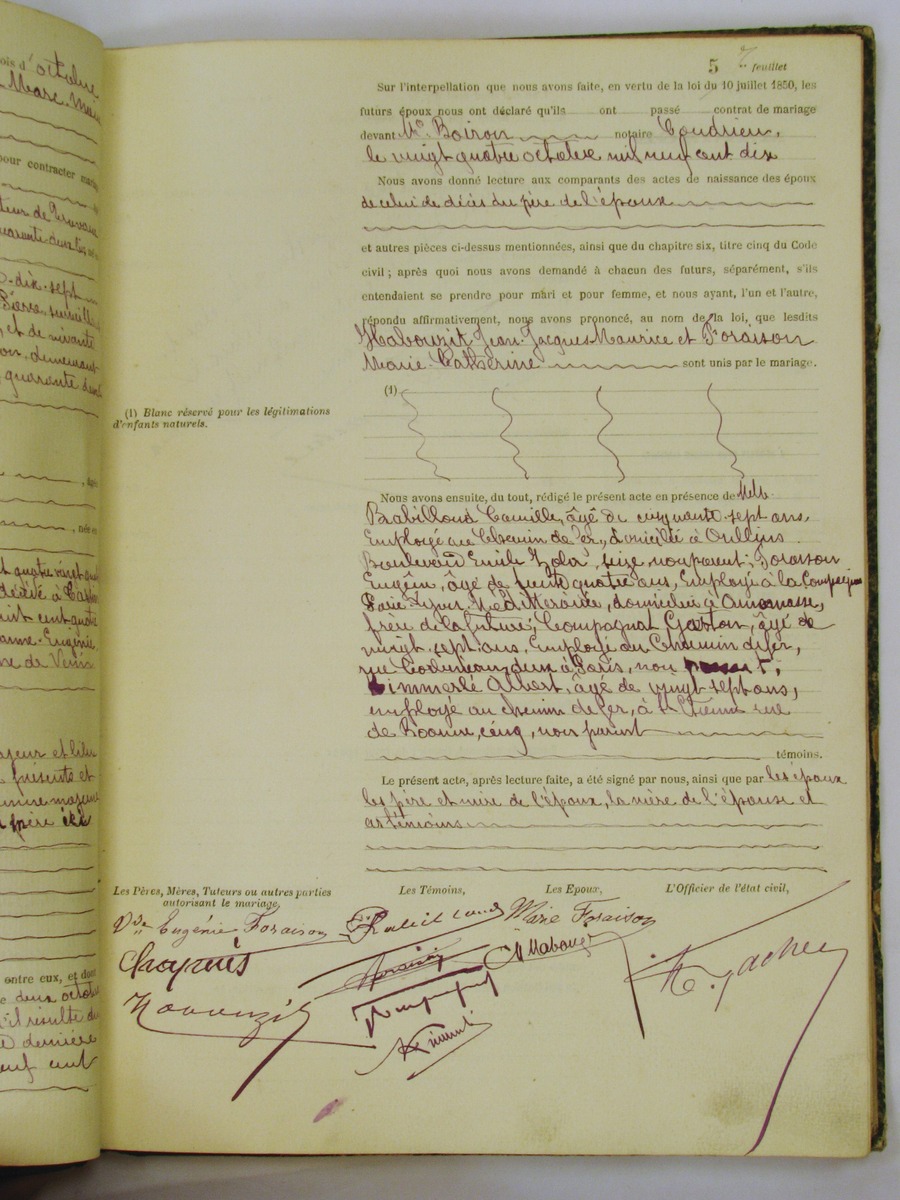 ois d'octobre
Marc. Mar
pour contracter maria
teur de Travaux
quarante deux
-dix-sept
Pierre, surveill
et de vivante
on, demeurant
quarante deux
, âgé
, née en
t quatre vingt
décédé à
uit cent quatre
anne. Eugénie
ne de Venin
ajeur et
présents et
mineure majeure
père
entre eux, et dont
e deux octobre
'il résulte du
dernière
euf cent
5 feuillet
Sur l'interpellation que nous avons faite, en vertu de la loi du 10 juillet 1850, les
futurs époux nous ont déclaré qu'ils ont passé contrat de mariage
devant Me. Boiron notaire Condrieu,
le vingt quatre octobre mil neuf cent dix
Nous avons donné lecture aux comparants des actes de naissance des époux
de celui de décès du père de l'époux
et autres pièces ci-dessus mentionnées, ainsi que du chapitre six, titre cinq du Code
civil ; après quoi nous avons demandé à chacun des futurs, séparément, s'ils
entendaient se prendre pour mari et pour femme, et nous ayant, l'un et l'autre,
répondu affirmativement, nous avons prononcé, au nom de la loi, que lesdits
Habouzit Jean-Jacques Maurice et Foraison
Marie-Catherine sont unis par le mariage.
(1)
(1) Blanc réservé pour les légitimations
d'enfants naturels.
Nous avons ensuite, du tout, rédigé le présent acte en présence de MM.
Rabilloud Camille, âgé de cinquante-sept ans,
Employé au Chemin de fer, domicilié à Oullins
Boulevard Emile Zola, seize, non parent; Foraison
Eugène, âgé de trente quatre ans, Employé à la Compagnie
Paris-Lyon-Méditerranée, domicilié à Annemasse,
frère de la future; Compagnat Gaston, âgé de
vingt-sept ans, Employé au Chemin de fer,
rue deux à Paris, non parent;
Kimmerlé Albert, âgé de vingt-sept ans,
employé au chemin de fer, à St Etienne rue
de Roanne, cinq, non parent
témoins.
Le présent acte, après lecture faite, a été signé par nous, ainsi que par les époux
les père et mère de l'époux, la mère de l'épouse et
les témoins
Les Pères, Mères, Tuteurs ou autres parties
autorisant le mariage,
Les Témoins,
Les Epoux,
L'Officier de l'état civil,
Vve Eugénie Foraison
Rabilloud
Marie Foraison
Chapuis
Foraison
M Habouzit
Habouzit